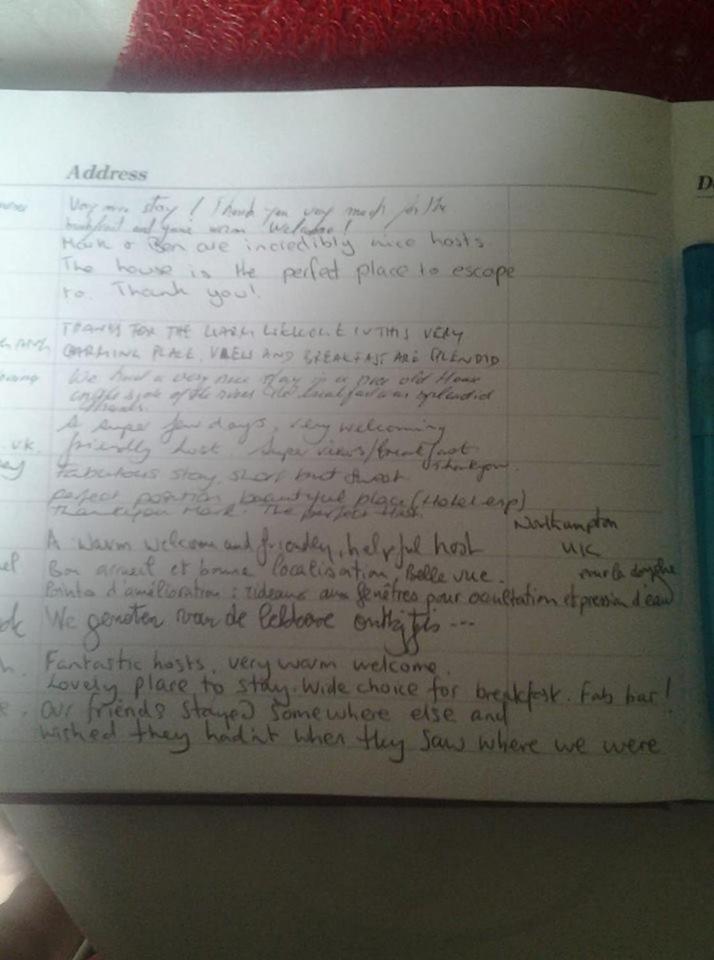 Address
D
Very nice stay! Thank you very much for the
breakfast and your warm welcome!
Mark & Ben are incredibly nice hosts.
The house is the perfect place to escape
to. Thank you!
THANKS FOR THE WARM WELCOME IN THIS VERY
CARMING PLACE. VIEWS AND BREAKFAST ARE SPLENDID
We had a very nice stay in a nice old House
on the side of the river. The breakfast was splendid
Thanks.
A super few days, very welcoming
U.K. friendly host. Super views/breakfast
Thankyou.
Fabulous stay, short but sweet
perfect position, beautiful place (Hotel esp)
Thankyou Mark. The perfect Host.
Northampton
A warm welcome and friendly, helpful host UK
Bon accueil et bonne localisation, Belle vue. pour la douche
Points d'amélioration : rideaux aux fenêtres pour occultation et pression d'eau
We genoten van de lekkere ontbijtjes ...
Fantastic hosts, very warm welcome.
Lovely place to stay. Wide choice for breakfast. Fab bar!
Our friends stayed somewhere else and
wished they hadn't when they saw where we were